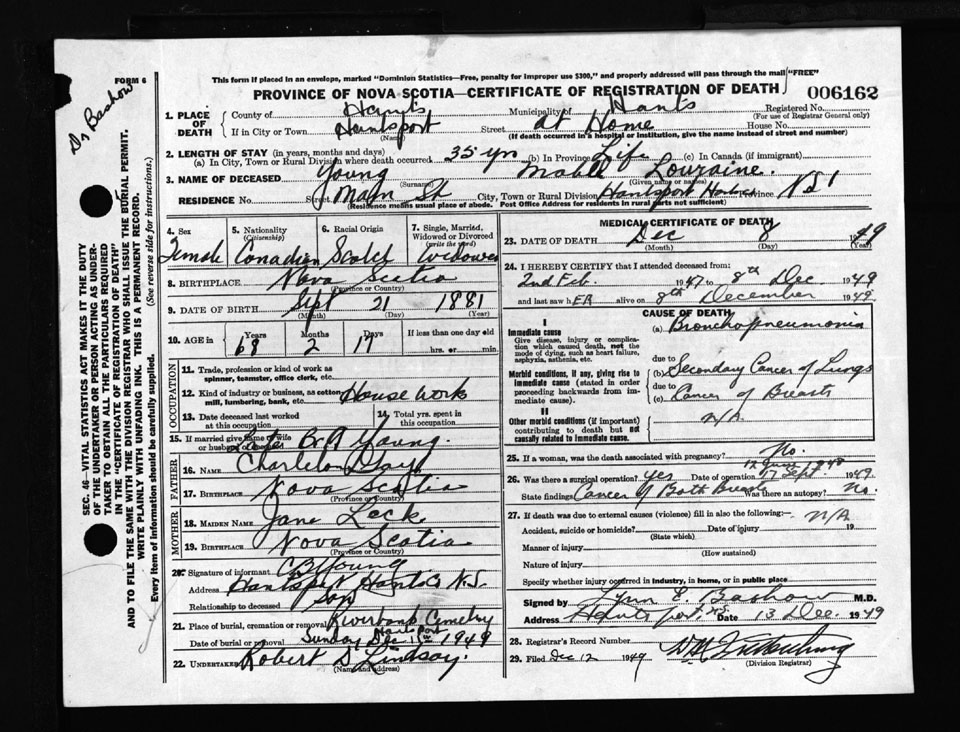 FORM 6
This form if placed in an envelope, marked "Dominion Statistics—Free, penalty for improper use $300," and properly addressed will pass through the mail "FREE"
PROVINCE OF NOVA SCOTIA—CERTIFICATE OF REGISTRATION OF DEATH
006162
Dr Bashow
SEC. 46—VITAL STATISTICS ACT MAKES IT THE DUTY
OF THE UNDERTAKER OR PERSON ACTING AS UNDER-
TAKER TO OBTAIN ALL THE PARTICULARS REQUIRED
IN THE "CERTIFICATE OF REGISTRATION OF DEATH"
AND TO FILE THE SAME WITH THE DIVISION REGISTRAR WHO SHALL ISSUE THE BURIAL PERMIT.
WRITE PLAINLY WITH UNFADING INK. THIS IS A PERMANENT RECORD.
Every item of information should be carefully supplied. (See reverse side for instructions.)
1. PLACE OF DEATH
County of Hants Municipality of Hants Registered No.
(For use of Registrar General only)
If in City or Town Hantsport Street at Home House No.
(Name) (If death occurred in a hospital or institution, give the name instead of street and number)
2. LENGTH OF STAY (in years, months and days)
(a) In City, Town or Rural Division where death occurred 35 yrs (b) In Province Life (c) In Canada (if immigrant)
3. NAME OF DECEASED Young Mable Louraine.
(Surname) (Given name or names)
RESIDENCE No. Street Main St City, Town or Rural Division Hantsport Province N S
(Residence means usual place of abode. Post Office Address for residents in rural parts not sufficient)
4. Sex 5. Nationality (Citizenship) 6. Racial Origin 7. Single, Married, Widowed or Divorced (write the word)
Female Canadian Scotch Widowed
8. BIRTHPLACE Nova Scotia
(Province or Country)
9. DATE OF BIRTH Sept 21 1881
(Month) (Day) (Year)
10. AGE in Years Months Days If less than one day old
68 2 17 hrs. or min.
OCCUPATION
11. Trade, profession or kind of work as spinner, teamster, office clerk, etc.
12. Kind of industry or business, as cotton mill, lumbering, bank, etc. House work
13. Date deceased last worked at this occupation 14. Total yrs. spent in this occupation
15. If married give name of wife or husband of deceased B A Young.
FATHER
16. Name Charleton
17. Birthplace Nova Scotia
(Province or Country)
MOTHER
18. MAIDEN NAME Jane Lock
19. BIRTHPLACE Nova Scotia
(Province or Country)
20. Signature of informant C B Young
Address Hantsport Hants Co N.S.
Relationship to deceased Son
21. Place of burial, cremation or removal Riverbank Cemetery
Hantsport
Date of burial or removal Sunday Dec 11th 1949
22. UNDERTAKER Robert S Lindsay.
(Name and address)
MEDICAL CERTIFICATE OF DEATH
23. DATE OF DEATH Dec 8 1949
(Month) (Day) (Year)
24. I HEREBY CERTIFY that I attended deceased from:
2nd Feb. 1947 to 8th Dec 1949
and last saw hER alive on 8th December 1949
CAUSE OF DEATH
I
Immediate cause
Give disease, injury or complication which caused death, not the mode of dying, such as heart failure, asphyxia, asthenia, etc.
(a) Bronchopneumonia
due to
Morbid conditions, if any, giving rise to immediate cause (stated in order proceeding backwards from immediate cause).
(b) Secondary Cancer of Lungs
due to
(c) Cancer of Breasts
II
Other morbid conditions (if important) contributing to death but not causally related to immediate cause.
N/A
25. If a woman, was the death associated with pregnancy? No.
26. Was there a surgical operation? Yes Date of operation 17 Sept. 1949
State findings Cancer of Both Breasts Was there an autopsy? No.
27. If death was due to external causes (violence) fill in also the following:— N/A
Accident, suicide or homicide? Date of injury 19
(State which)
Manner of injury
(How sustained)
Nature of injury
Specify whether injury occurred in industry, in home, or in public place
Signed by Lynn E. Bashow M.D.
Address Hantsport NS Date 13 Dec. 1949
28. Registrar's Record Number
29. Filed Dec 12 1949
(Division Registrar)